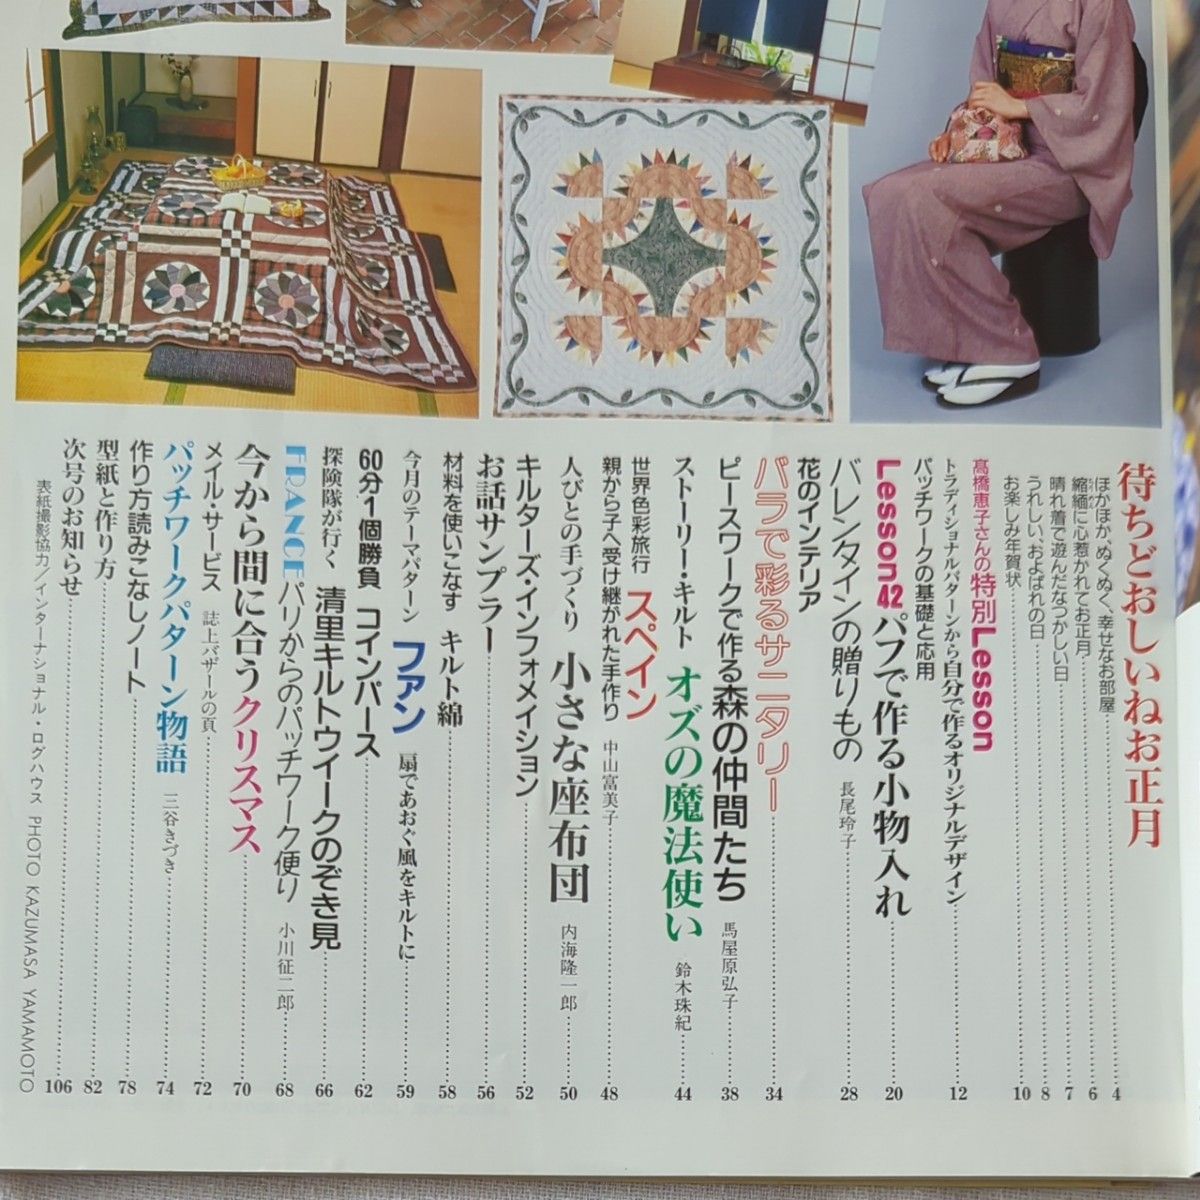 待ちどおしいねお正月
ほかほか、ぬくぬく、幸せなお部屋 4
縮緬に心惹かれてお正月 6
晴れ着で遊んだなつかしい日 7
うれしい、およばれの日 8
お楽しみ年賀状 10
髙橋恵子さんの特別Lesson
トラディショナルパターンから自分で作るオリジナルデザイン 12
パッチワークの基礎と応用
Lesson42 パフで作る小物入れ 20
バレンタインの贈りもの 長尾玲子 28
花のインテリア
バラで彩るサニタリー 34
ピースワークで作る森の仲間たち 馬屋原弘子 38
ストーリー・キルト オズの魔法使い 鈴木珠紀 44
世界色彩旅行 スペイン
親から子へ受け継がれた手作り 中山富美子 48
人びとの手づくり 小さな座布団 内海隆一郎 50
キルターズ・インフォメイション 52
お話サンプラー 56
材料を使いこなす キルト綿 58
今月のテーマパターン ファン 扇であおぐ風をキルトに 59
60分1個勝負 コインパース 62
探険隊が行く 清里キルトウイークのぞき見 66
FRANCE パリからのパッチワーク便り 小川征二郎 68
今から間に合うクリスマス 70
メイル・サービス 誌上バザールの頁 72
パッチワークパターン物語 三谷きづき 74
作り方読みこなしノート 78
型紙と作り方 82
次号のお知らせ 106
表紙撮影協力/インターナショナル・ログハウス PHOTO KAZUMASA YAMAMOTO